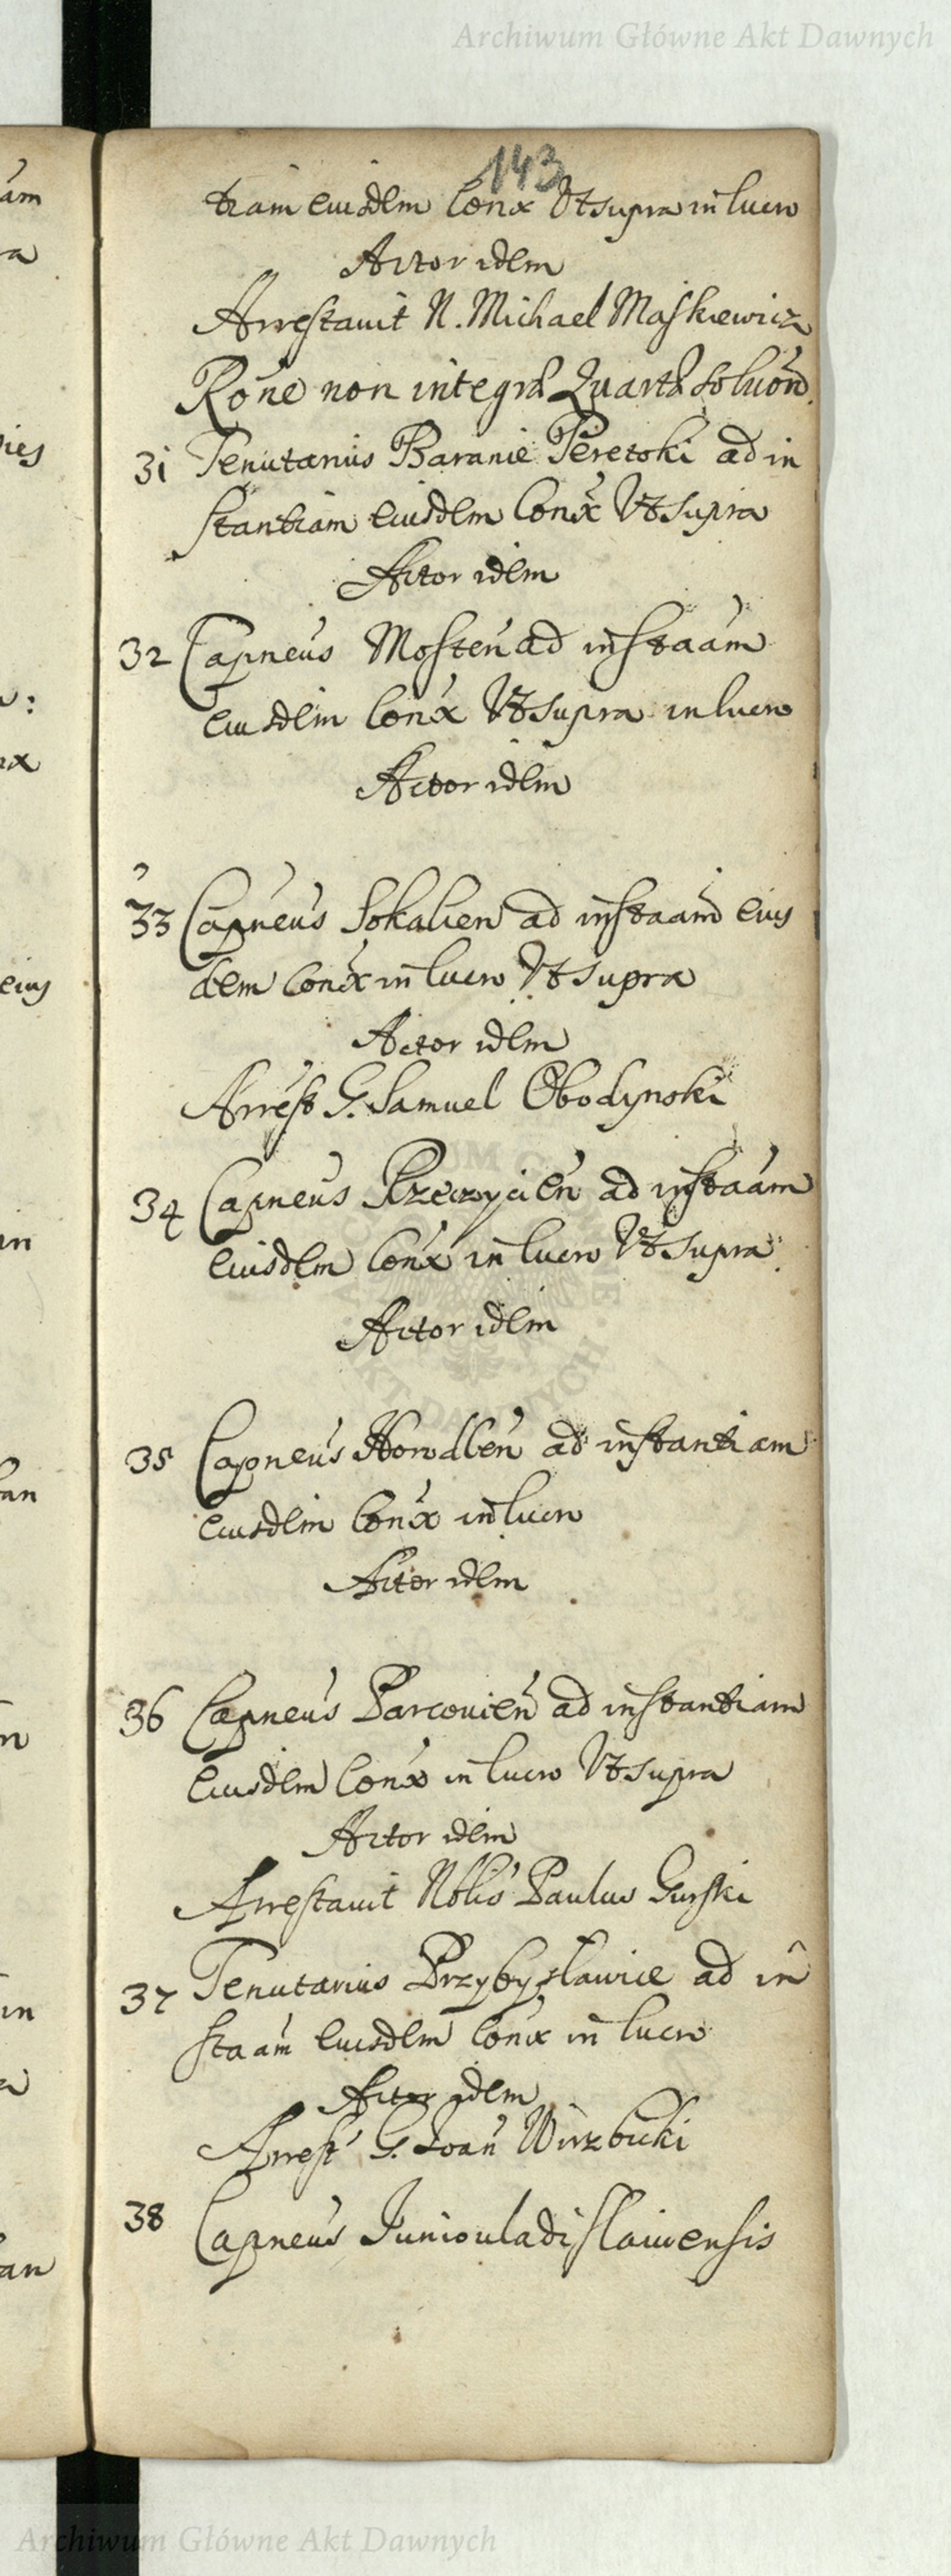 Archiwum Główne Akt Dawnych
143
tiam eiusdem Conx Vt supra in lucro
Actor idem
Arrestauit N. Michael Maskiewicz
Rone non integra Quarta soluon
31 Tenutarius Baranie Peretoki ad in
stantiam eiusdem Conx Vt supra
Actor idem
32 Capneus Mosten ad instaam
eiusdem Conx Vt supra in lucro
Actor idem
33 Capneus Sokalien ad instaam eius
dem Conx in lucro Vt supra
Actor idem
Arrest G. Samuel Obodynski
34 Capneus Rzeczycien ad instaam
eiusdem Conx in lucro Vt supra
Actor idem
35 Capneus Horodlen ad instantiam
eiusdem Conx in lucro
Actor idem
36 Capneus Parcouien ad instantiam
eiusdem Conx in lucro Vt supra
Actor idem
Arrestauit Nblis Paulus Gurski
37 Tenutarius Przybyslawice ad in
staam eiusdem Conx in lucro
Actor idem
Arrest G. Joan Wirzbicki
38 Capneus Juniouladislauiensis
Archiwum Główne Akt Dawnych